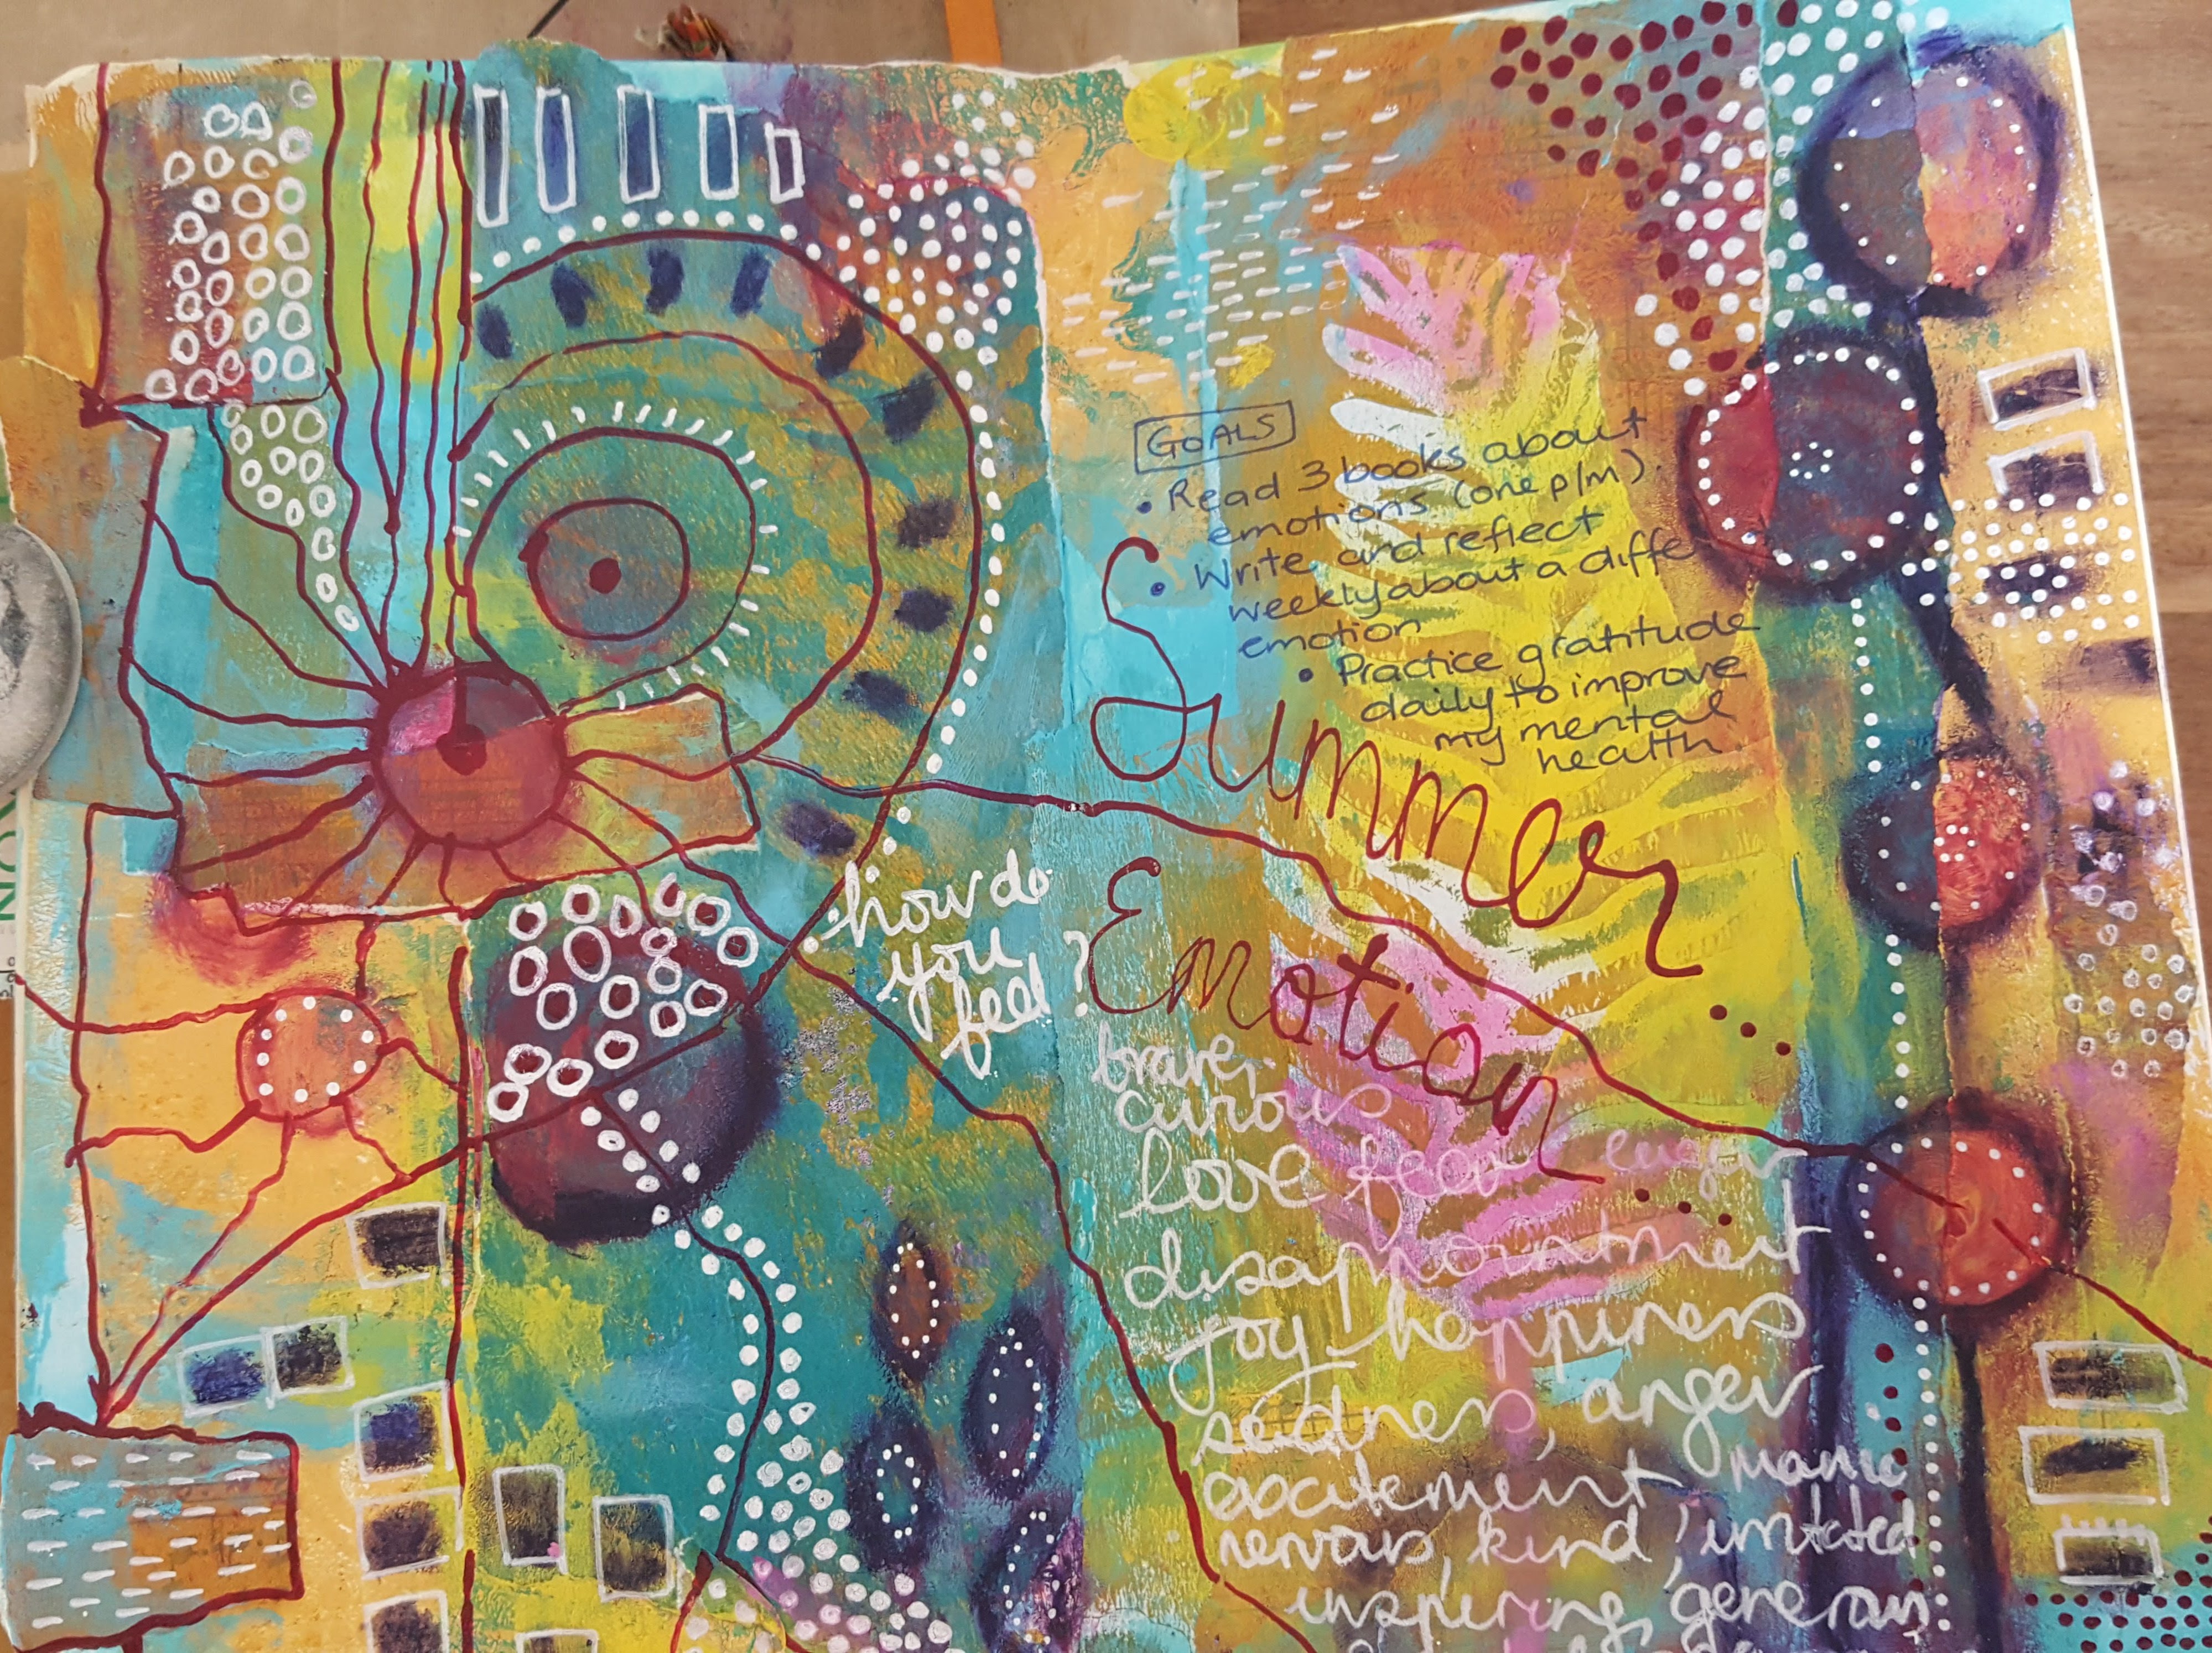 how do
you
feel?
GOALS
• Read 3 books about
emotions (one p/m).
• Write and reflect
weekly about a diffe
emotion
• Practice gratitude
daily to improve
my mental
health
Summer
Emotion
brave,
curious
love fear anger
disappointment
joy, happiness
sadness, anger
excitement manic
nervous, kind, irritated
inspiring, generous